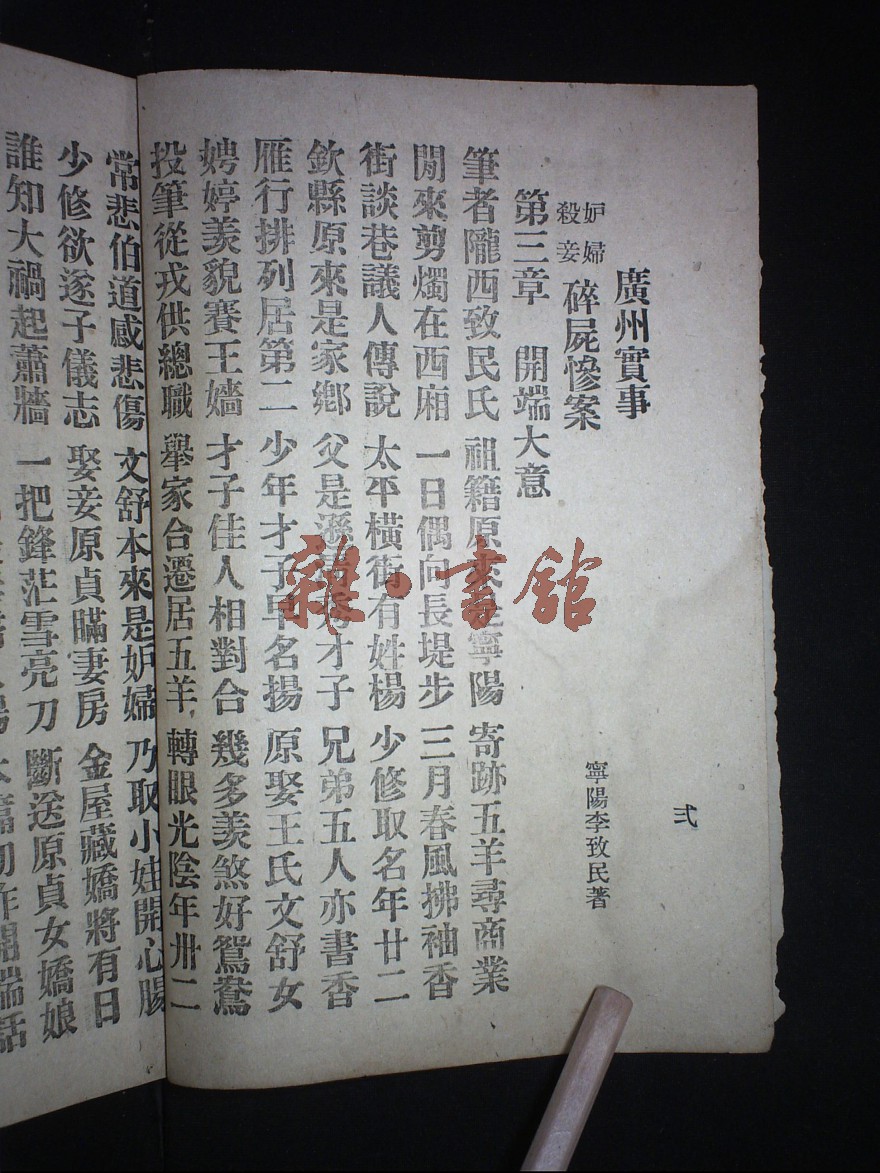 弍
廣州實事
妒婦殺妾 碎屍慘案
寧陽李致民著
第三章 開端大意
筆者隴西致民氏 祖籍原來是寧陽 寄跡五羊尋商業
閒來剪燭在西廂 一日偶向長堤步 三月春風拂袖香
街談巷議人傳說 太平橫街有姓楊 少修取名年廿二
欽縣原來是家鄉 父是遜 才子 兄弟五人亦書香
雁行排列居第二 少年才子早名揚 原娶王氏文舒女
娉婷美貌賽王嬙 才子佳人相對合 幾多羨煞好鴛鴦
投筆從戎供總職 舉家合遷居五羊 轉眼光陰年卅二
常悲伯道感悲傷 文舒本來是妒婦 乃取小娃開心腸
少修欲遂子儀志 娶妾原貞瞞妻房 金屋藏嬌將有日
誰知大禍起蕭牆 一把鋒茫雪亮刀 斷送原貞女嬌娘
開端話
雜·書館